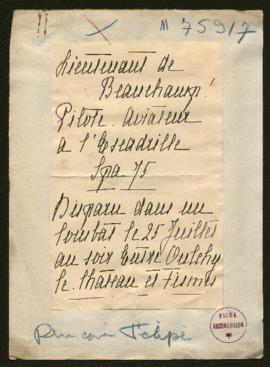 M 75917
Lieutenant de
Beauchamp!
Pilote. Aviateur
a l'Escadrille
Spa 75
Disparu dans un
Combat le 25 Juillet
au soir Entre Oulchy
le. Château et Fismes
FICHA